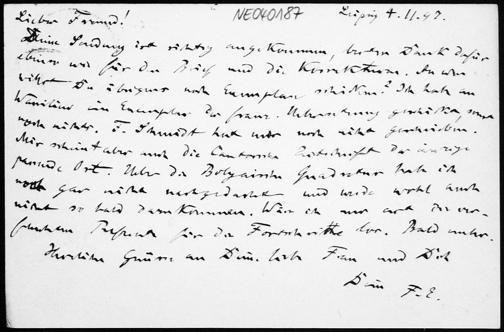 NE040187
Leipzig 4.11.97.
Lieber Freund!
Deine Sendung ist richtig angekommen, besten Dank dafür
ebenso wie für den Brief und die Korrekturen. An wen
willst Du übrigens noch Exemplare schicken? Ich habe an
ein Exemplar der franz. Uebersetzung geschickt, sonst
noch nichts. F. Schmidt hat mir noch nicht geschrieben.
Mir scheint aber auch die Cantorsche Zeitschrift der einzige
passende Ort. Ueber die Bolyaische Quadratur habe ich
noch gar nicht nachgedacht und werde wohl auch
nicht so bald dazu kommen. Wäre ich nur erst die
für die Fortschritte los. Bald mehr.
Herzliche Grüsse an Deine liebe Frau und Dich
Dein F. E.